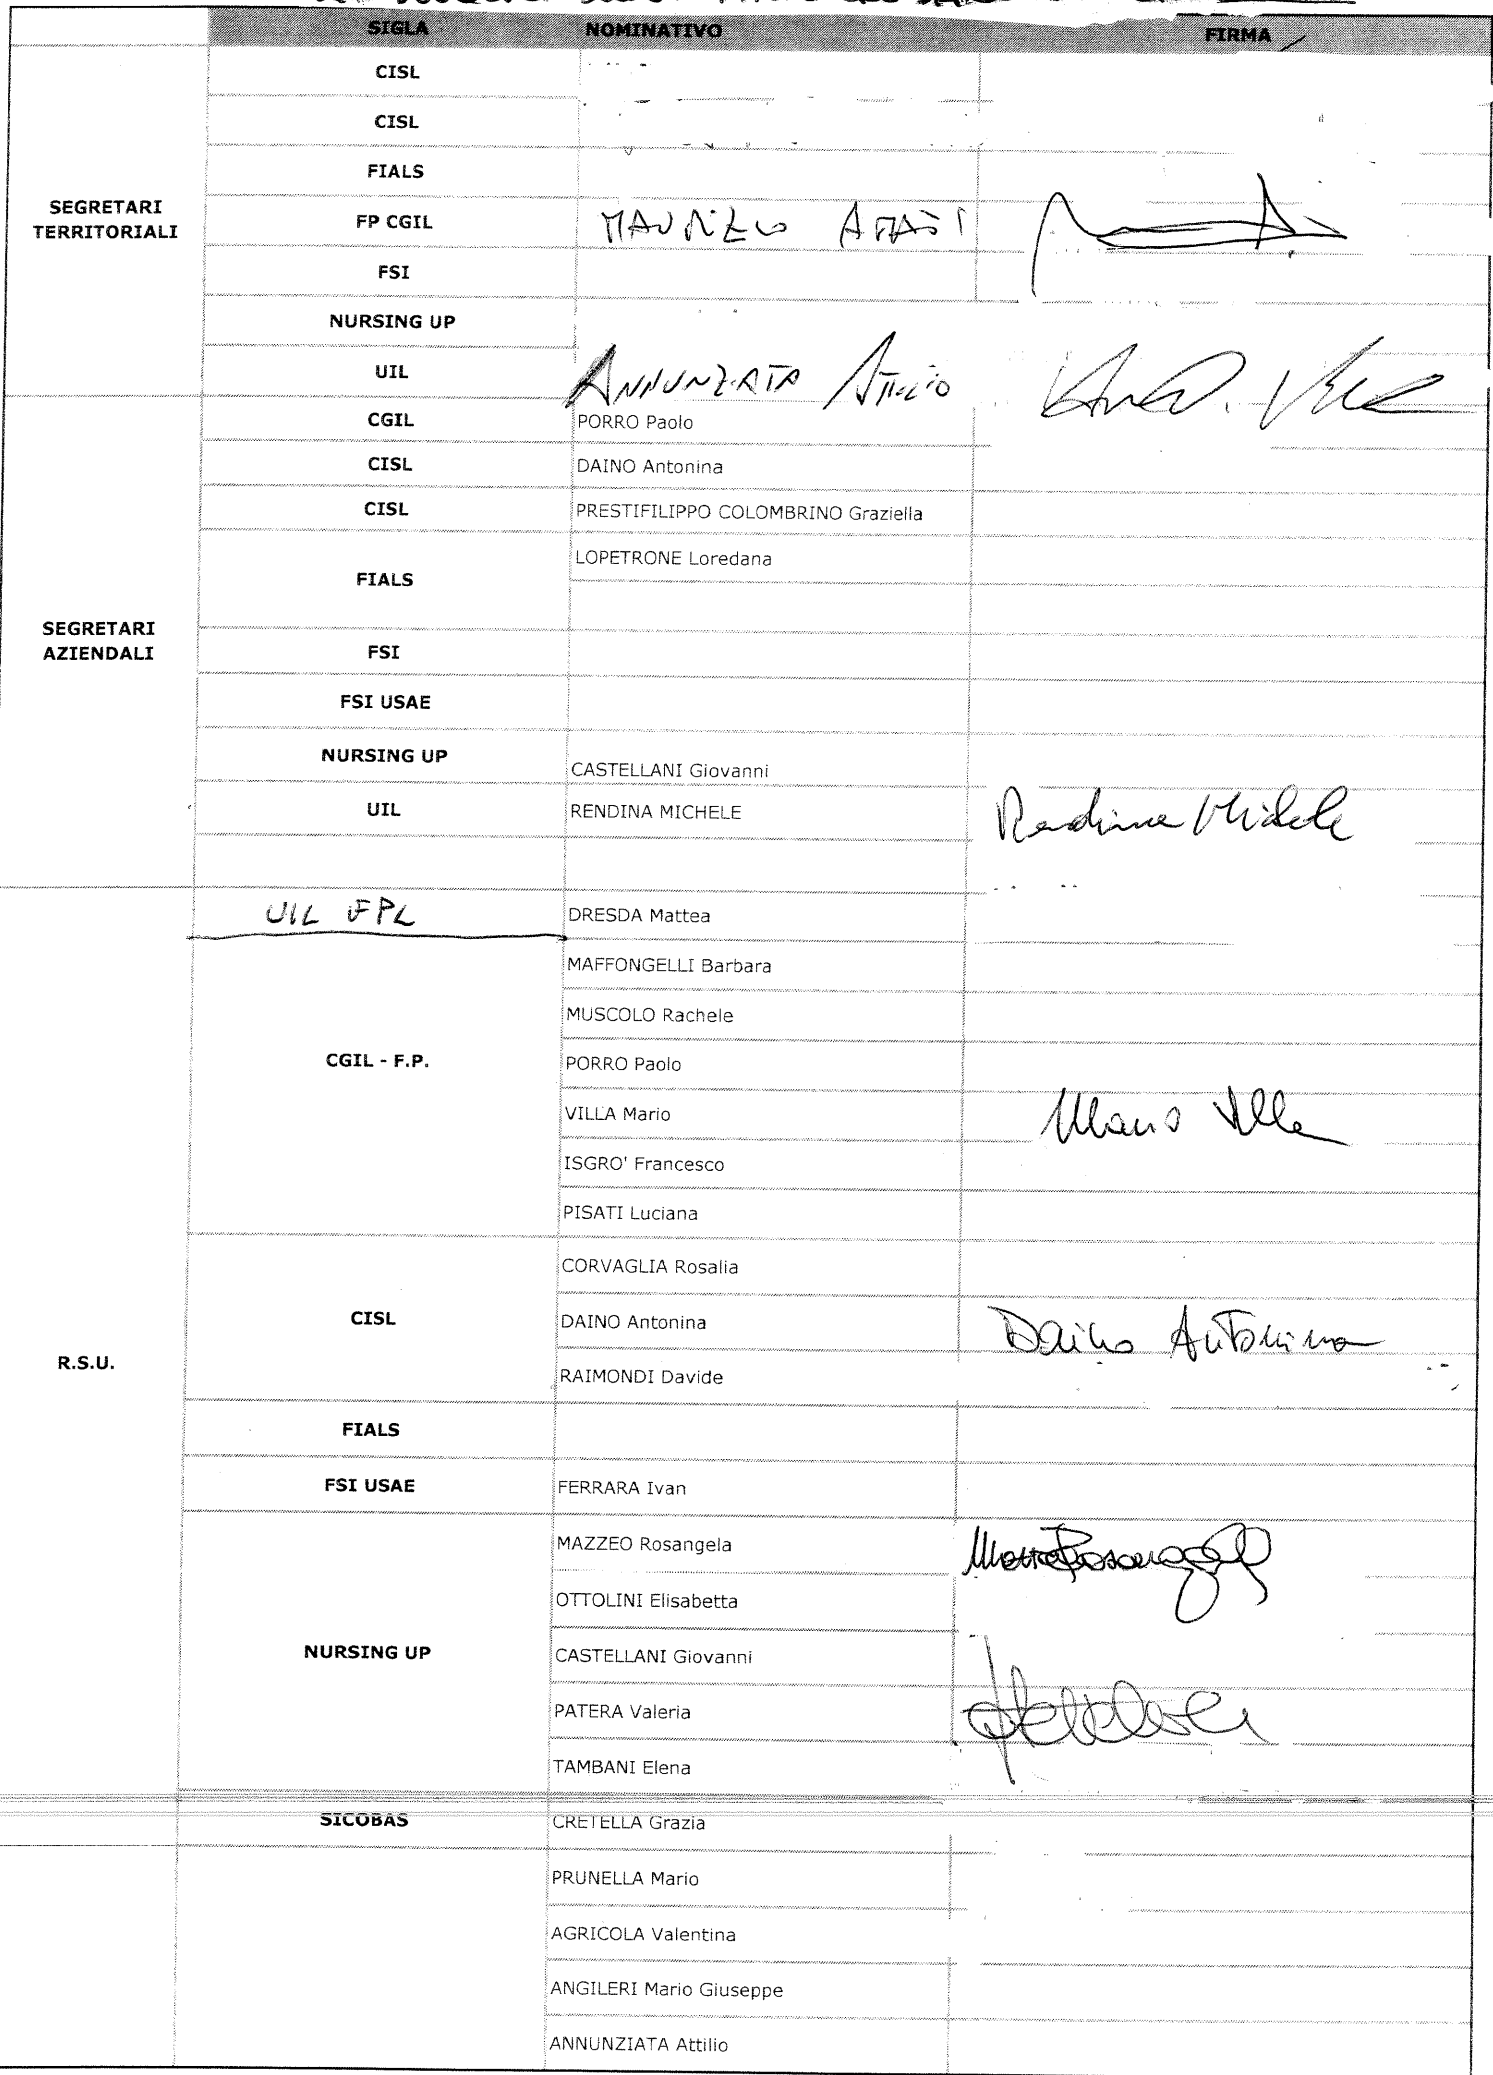 SIGLA NOMINATIVO FIRMA
CISL
CISL
FIALS
SEGRETARI TERRITORIALI
FP CGIL MAURIZIO
FSI
NURSING UP
UIL ANNUNZIATA Attilio
CGIL PORRO Paolo
CISL DAINO Antonina
CISL PRESTIFILIPPO COLOMBRINO Graziella
FIALS LOPETRONE Loredana
SEGRETARI AZIENDALI
FSI
FSI USAE
NURSING UP CASTELLANI Giovanni
UIL RENDINA MICHELE Rendina Michele
UIL FPL DRESDA Mattea
MAFFONGELLI Barbara
MUSCOLO Rachele
CGIL - F.P. PORRO Paolo
VILLA Mario Mario Villa
ISGRO' Francesco
PISATI Luciana
CORVAGLIA Rosalia
CISL DAINO Antonina Daino Antonina
R.S.U. RAIMONDI Davide
FIALS
FSI USAE FERRARA Ivan
MAZZEO Rosangela Mazzeo Rosangela
OTTOLINI Elisabetta
NURSING UP CASTELLANI Giovanni
PATERA Valeria
TAMBANI Elena
SICOBAS CRETELLA Grazia
PRUNELLA Mario
AGRICOLA Valentina
ANGILERI Mario Giuseppe
ANNUNZIATA Attilio